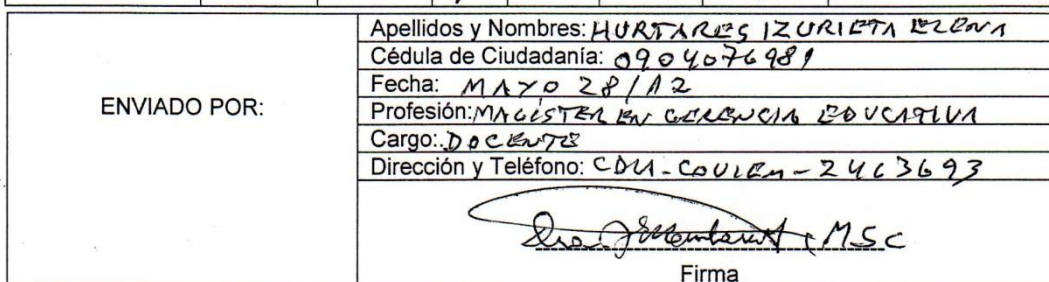 Apellidos y Nombres: HURTARES IZURIETA ELENA
Cédula de Ciudadanía: 0904076981
Fecha: MAYO 28/12
ENVIADO POR:
Profesión: MAGISTER EN GERENCIA EDUCATIVA
Cargo: DOCENTE
Dirección y Teléfono: CDLA - - 2463693
MSc
Firma